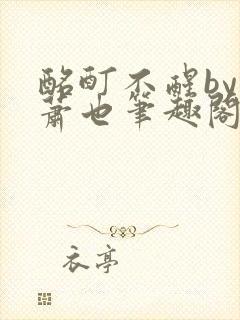 酩酊不醒by
萧也笔趣阁
衣亭